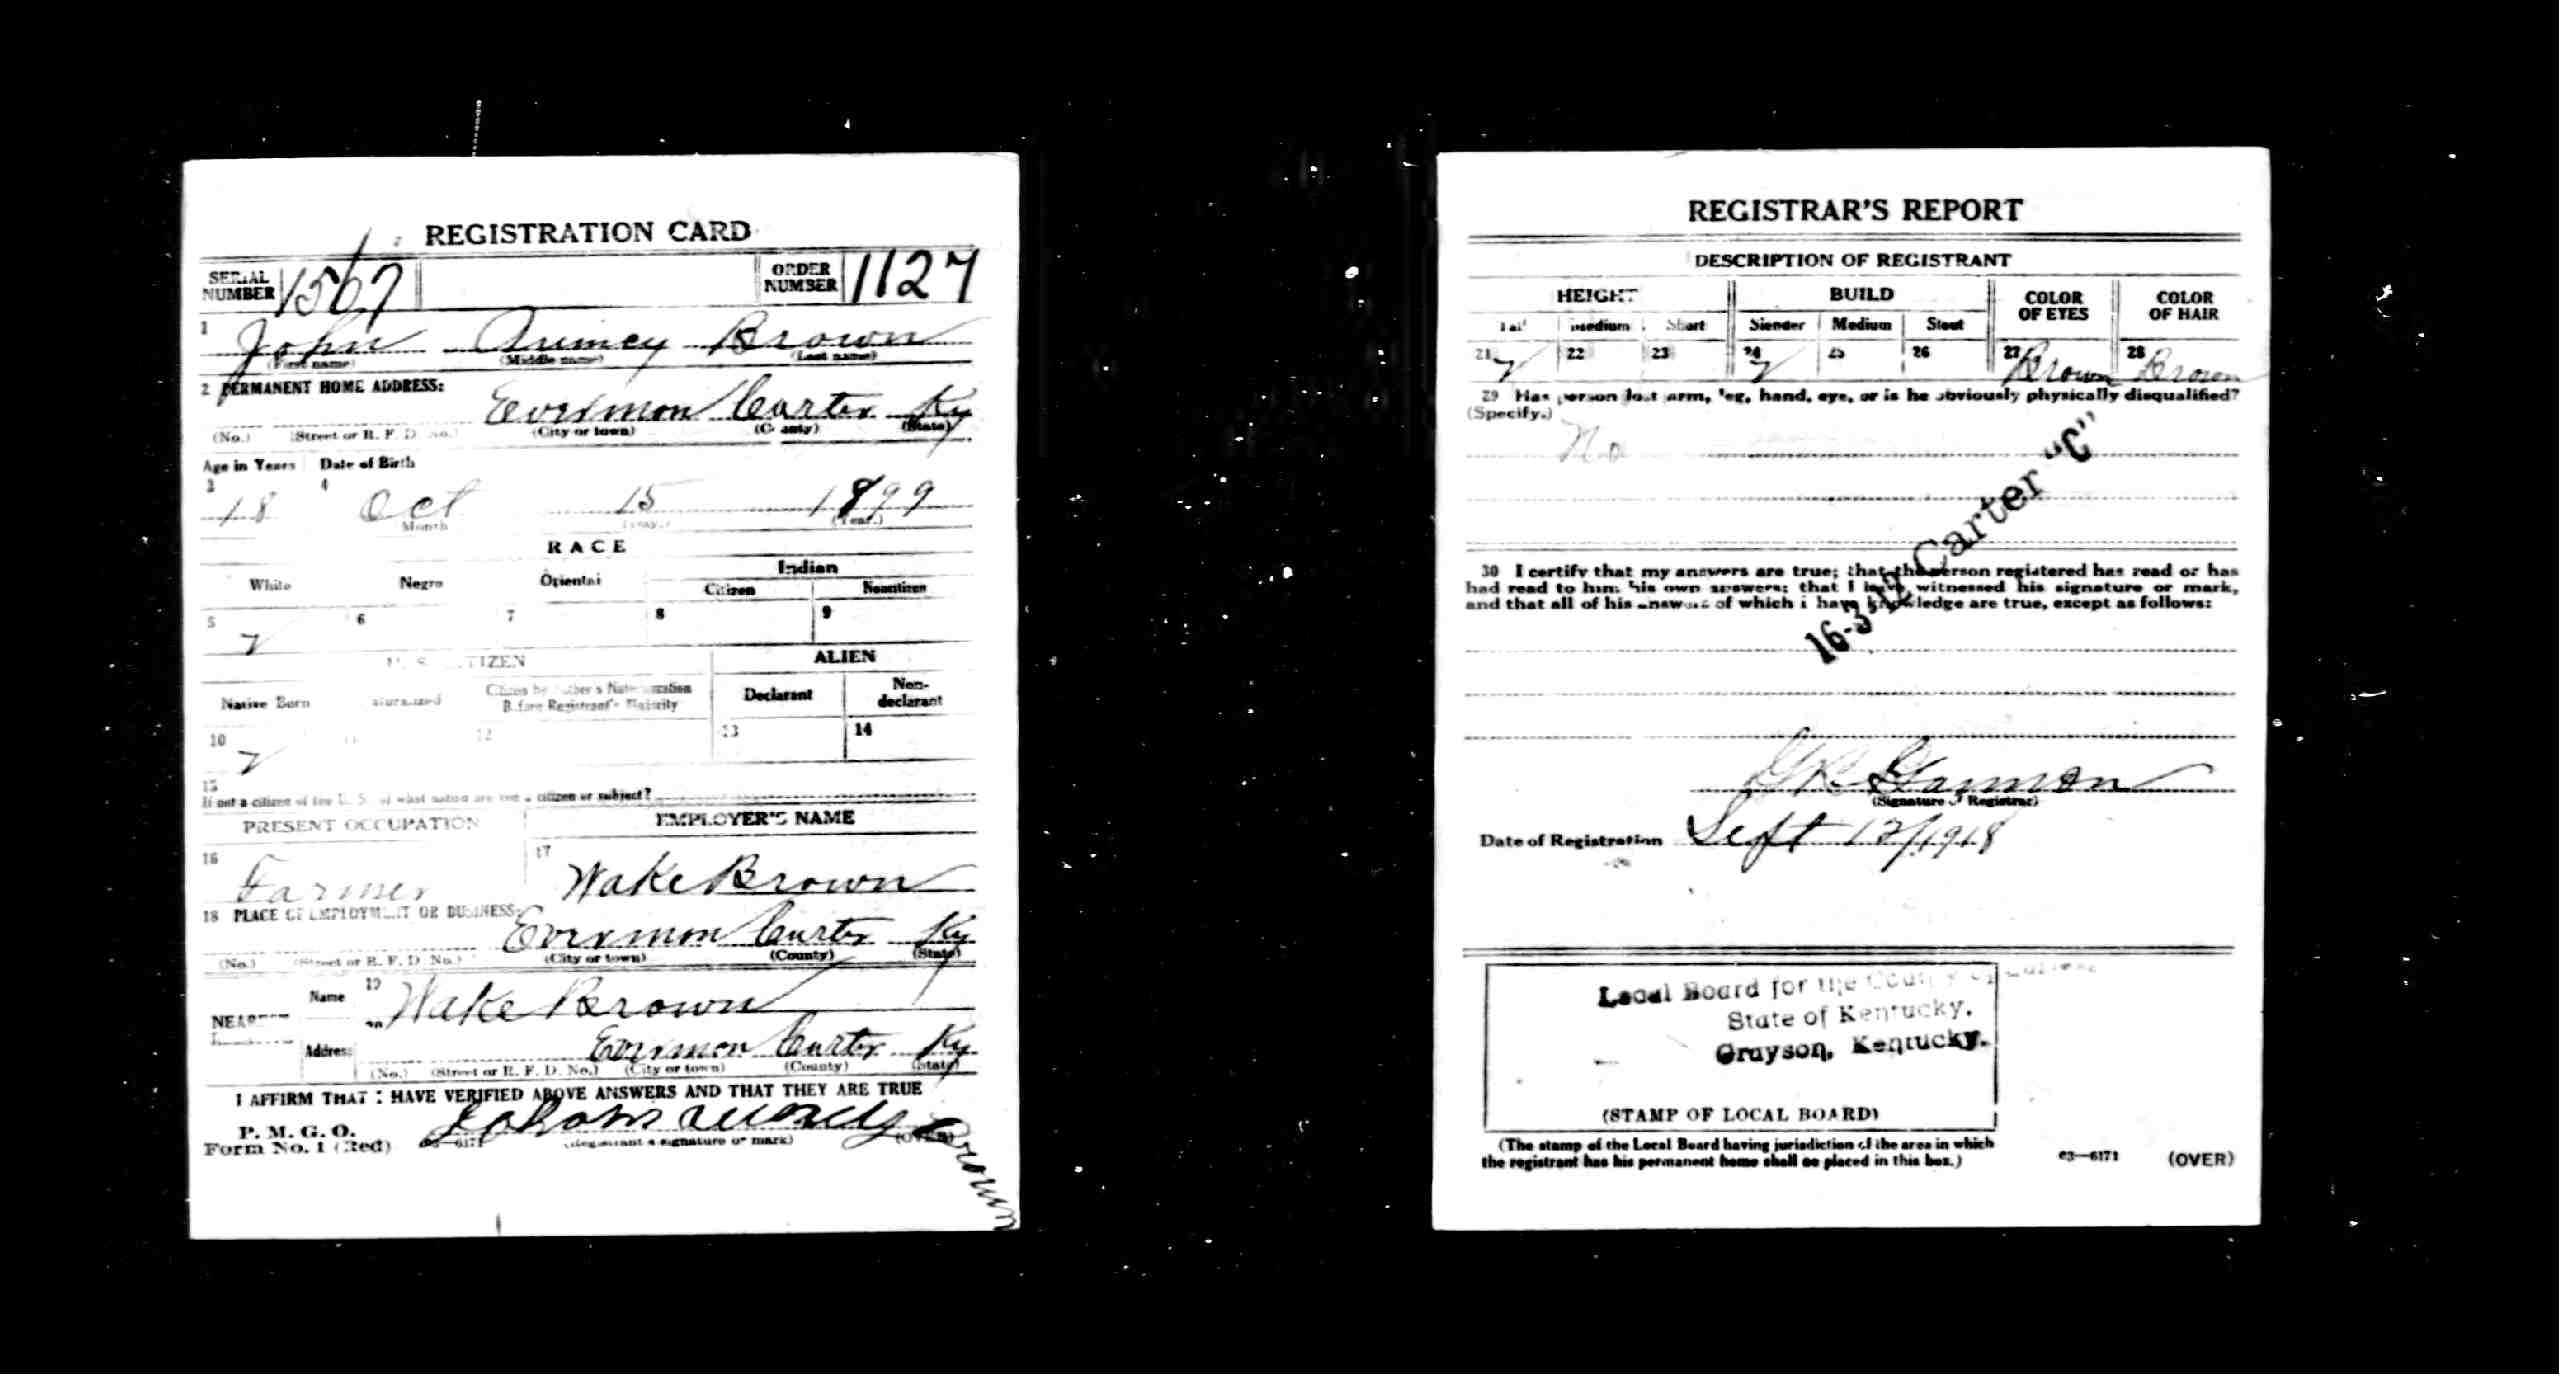 REGISTRATION CARD
SERIAL NUMBER 1567 ORDER NUMBER 1127
1 John Quincy Brown
(First name) (Middle name) (Last name)
2 PERMANENT HOME ADDRESS:
Evermon Carter Ky
(No.) (Street or R. F. D. No.) (City or town) (County) (State)
Age in Years Date of Birth
3 4
18 Oct 15 1899
Month (Day.) (Year.)
RACE
White Negro Oriental Indian
Citizen Noncitizen
5 6 7 8 9
U. S. CITIZEN ALIEN
Native Born Naturalized Citizen by Father's Naturalization Before Registrant's Majority Declarant Non-declarant
10 11 12 13 14
15
If not a citizen of the U. S., of what nation are you a citizen or subject?
PRESENT OCCUPATION EMPLOYER'S NAME
16 Farmer 17 Wake Brown
18 PLACE OF EMPLOYMENT OR BUSINESS:
Evermon Carter Ky
(No.) (Street or R. F. D. No.) (City or town) (County) (State)
NEAREST
Name 19 Wake Brown
Address 20 Evermon Carter Ky
(No.) (Street or R. F. D. No.) (City or town) (County) (State)
I AFFIRM THAT I HAVE VERIFIED ABOVE ANSWERS AND THAT THEY ARE TRUE
P. M. G. O.
Form No. 1 (Red) 03—6171 (Registrant's signature or mark) (OVER)
Brown
REGISTRAR'S REPORT
DESCRIPTION OF REGISTRANT
HEIGHT BUILD COLOR OF EYES COLOR OF HAIR
Tall Medium Short Slender Medium Stout
21 22 23 24 25 26 27 Brown 28 Brown
29 Has person lost arm, leg, hand, eye, or is he obviously physically disqualified?
(Specify.)
No
16-3-12 Carter "C"
30 I certify that my answers are true; that the person registered has read or has
had read to him his own answers; that I have witnessed his signature or mark,
and that all of his answers of which I have knowledge are true, except as follows:
(Signature of Registrar)
Date of Registration Sept 12/1918
Local Board for the County of Carter,
State of Kentucky,
Grayson, Kentucky.
(STAMP OF LOCAL BOARD)
(The stamp of the Local Board having jurisdiction of the area in which
the registrant has his permanent home shall be placed in this box.)
03—6171 (OVER)